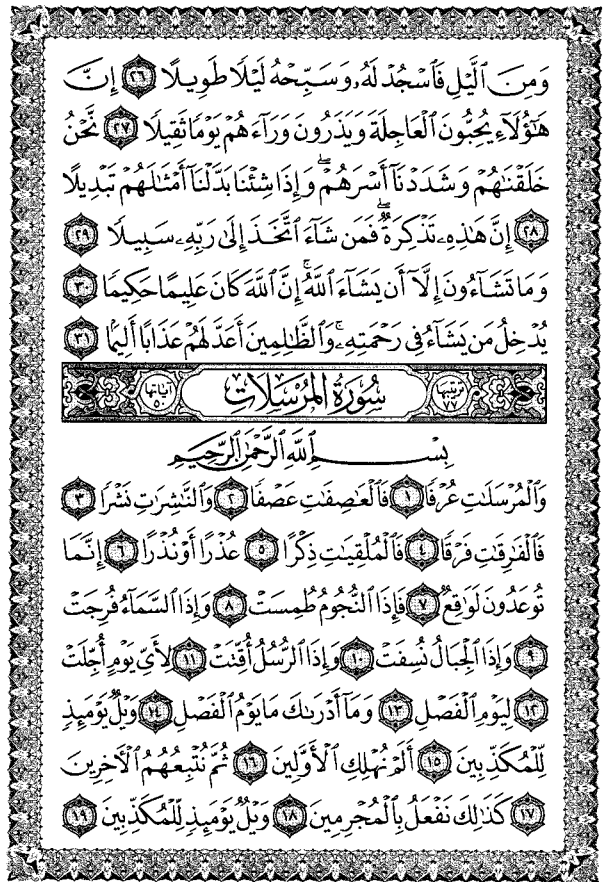 وَمِنَ ٱلَّيْلِ فَٱسْجُدْ لَهُۥ وَسَبِّحْهُ لَيْلًا طَوِيلًا ٢٦ إِنَّ
هَٰٓؤُلَآءِ يُحِبُّونَ ٱلْعَاجِلَةَ وَيَذَرُونَ وَرَآءَهُمْ يَوْمًا ثَقِيلًا ٢٧ نَّحْنُ
خَلَقْنَٰهُمْ وَشَدَدْنَآ أَسْرَهُمْ ۖ وَإِذَا شِئْنَا بَدَّلْنَآ أَمْثَٰلَهُمْ تَبْدِيلًا
٢٨ إِنَّ هَٰذِهِۦ تَذْكِرَةٌ ۖ فَمَن شَآءَ ٱتَّخَذَ إِلَىٰ رَبِّهِۦ سَبِيلًا ٢٩
وَمَا تَشَآءُونَ إِلَّآ أَن يَشَآءَ ٱللَّهُ ۚ إِنَّ ٱللَّهَ كَانَ عَلِيمًا حَكِيمًا ٣٠
يُدْخِلُ مَن يَشَآءُ فِى رَحْمَتِهِۦ ۚ وَٱلظَّٰلِمِينَ أَعَدَّ لَهُمْ عَذَابًا أَلِيمًۢا ٣١
ترتيبها ٧٧ سُورَةُ المُرْسَلَات آياتها ٥٠
بِسْمِ ٱللَّهِ ٱلرَّحْمَٰنِ ٱلرَّحِيمِ
وَٱلْمُرْسَلَٰتِ عُرْفًا ١ فَٱلْعَٰصِفَٰتِ عَصْفًا ٢ وَٱلنَّٰشِرَٰتِ نَشْرًا ٣
فَٱلْفَٰرِقَٰتِ فَرْقًا ٤ فَٱلْمُلْقِيَٰتِ ذِكْرًا ٥ عُذْرًا أَوْ نُذْرًا ٦ إِنَّمَا
تُوعَدُونَ لَوَٰقِعٌ ٧ فَإِذَا ٱلنُّجُومُ طُمِسَتْ ٨ وَإِذَا ٱلسَّمَآءُ فُرِجَتْ
٩ وَإِذَا ٱلْجِبَالُ نُسِفَتْ ١٠ وَإِذَا ٱلرُّسُلُ أُقِّتَتْ ١١ لِأَىِّ يَوْمٍ أُجِّلَتْ
١٢ لِيَوْمِ ٱلْفَصْلِ ١٣ وَمَآ أَدْرَىٰكَ مَا يَوْمُ ٱلْفَصْلِ ١٤ وَيْلٌ يَوْمَئِذٍ
لِّلْمُكَذِّبِينَ ١٥ أَلَمْ نُهْلِكِ ٱلْأَوَّلِينَ ١٦ ثُمَّ نُتْبِعُهُمُ ٱلْءَاخِرِينَ
١٧ كَذَٰلِكَ نَفْعَلُ بِٱلْمُجْرِمِينَ ١٨ وَيْلٌ يَوْمَئِذٍ لِّلْمُكَذِّبِينَ ١٩